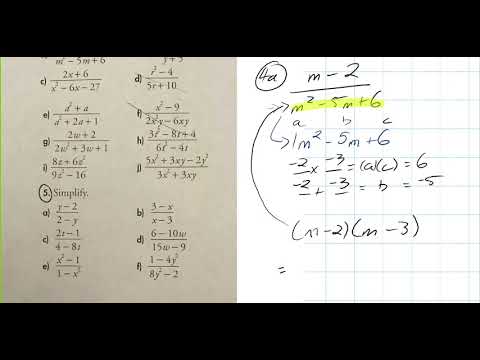 m² − 5m + 6 y + 5
c) 2x + 6 / x² − 6x − 27 d) r² − 4 / 5r + 10
e) a² + a / a² + 2a + 1 f) x² − 9 / 2x²y − 6xy
g) 2w + 2 / 2w² + 3w + 1 h) 3t² − 8t + 4 / 6t² − 4t
i) 8z + 6z² / 9z² − 16 j) 5x² + 3xy − 2y² / 3x² + 3xy
5. Simplify.
a) y − 2 / 2 − y b) 3 − x / x − 3
c) 2t − 1 / 4 − 8t d) 6 − 10w / 15w − 9
e) x² − 1 / 1 − x² f) 1 − 4y² / 8y² − 2
4a m − 2
m² − 5m + 6
a b c
1m² − 5m + 6
−2 x −3 = (a)(c) = 6
−2 + −3 = b = −5
(m − 2)(m − 3)
=